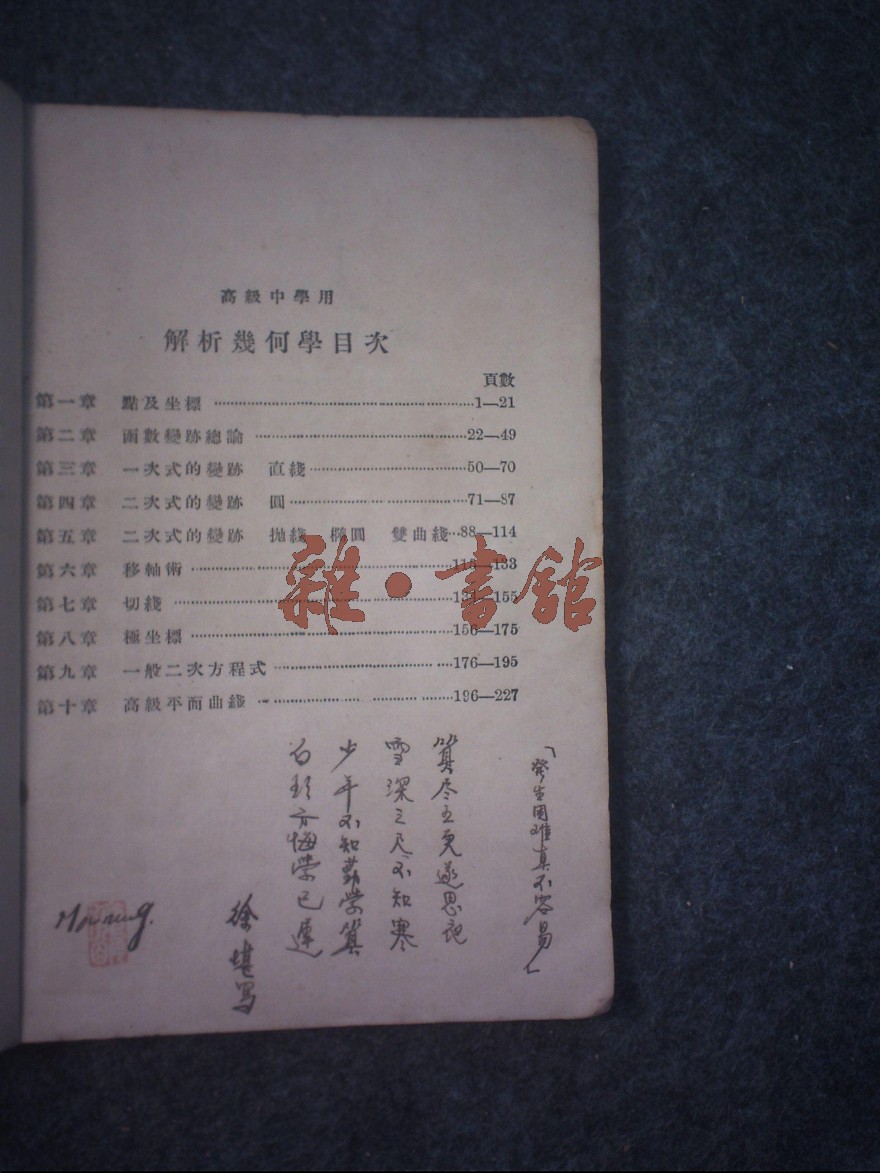 高級中學用
解析幾何學目次
頁數
第一章 點及坐標 1—21
第二章 函數變跡總論 22—49
第三章 一次式的變跡 直綫 50—70
第四章 二次式的變跡 圓 71—87
第五章 二次式的變跡 拋綫 橢圓 雙曲綫 88—114
第六章 移軸術 133
第七章 切綫 155
第八章 極坐標 156—175
第九章 一般二次方程式 176—195
第十章 高級平面曲綫 196—227
雜·書館
「學生困难真不容易」
算尽五更遂思
雪深三尺不知寒
少年不知勤学算
白 方悔学已遲
徐 写